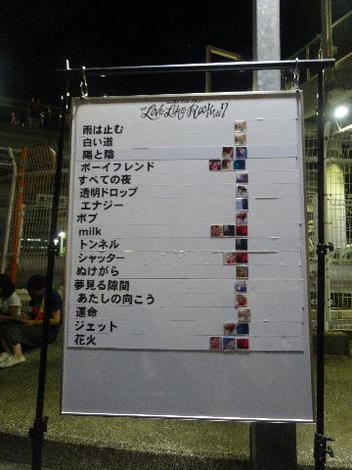 Love Like Rock vol.7
雨は止む
白い道
陽と陰
ボーイフレンド
すべての夜
透明ドロップ
エナジー
ポプ
milk
トンネル
シャッター
ぬけがら
夢見る隙間
あたしの向こう
運命
ジェット
花火